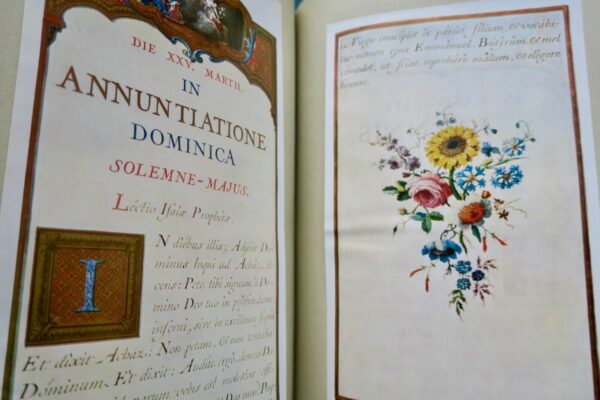 DIE XXV. MARTII.
IN
ANNUNTIATIONE
DOMINICA
SOLEMNE-MAJUS.
Lectio Isaiæ Prophetæ.
IN diebus illis; Adjecit Do-
minus loqui ad Achaz,
cens: Pete tibi signum a Do-
mino Deo tuo in profundum
inferni, sive in excelsum
Et dixit Achaz: Non petam, & non tentabo
Dominum. Et dixit: Audite ergo, domus Da-
parum vobis est molestos esse
Deo meo? Prop-
ce Virgo concipiet & pariet filium, & vocabi-
tur nomen ejus Emmanuel. Butyrum & mel
comedet, ut sciat reprobare malum, & eligere
bonum.